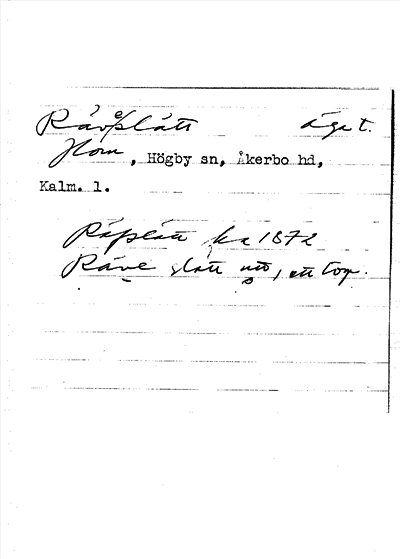 Råveslätt äget.
Horn, Högby sn, Åkerbo hd,
Kalm. l.
Räpslätt ka 1872
Räve slätt utt, ett torp.